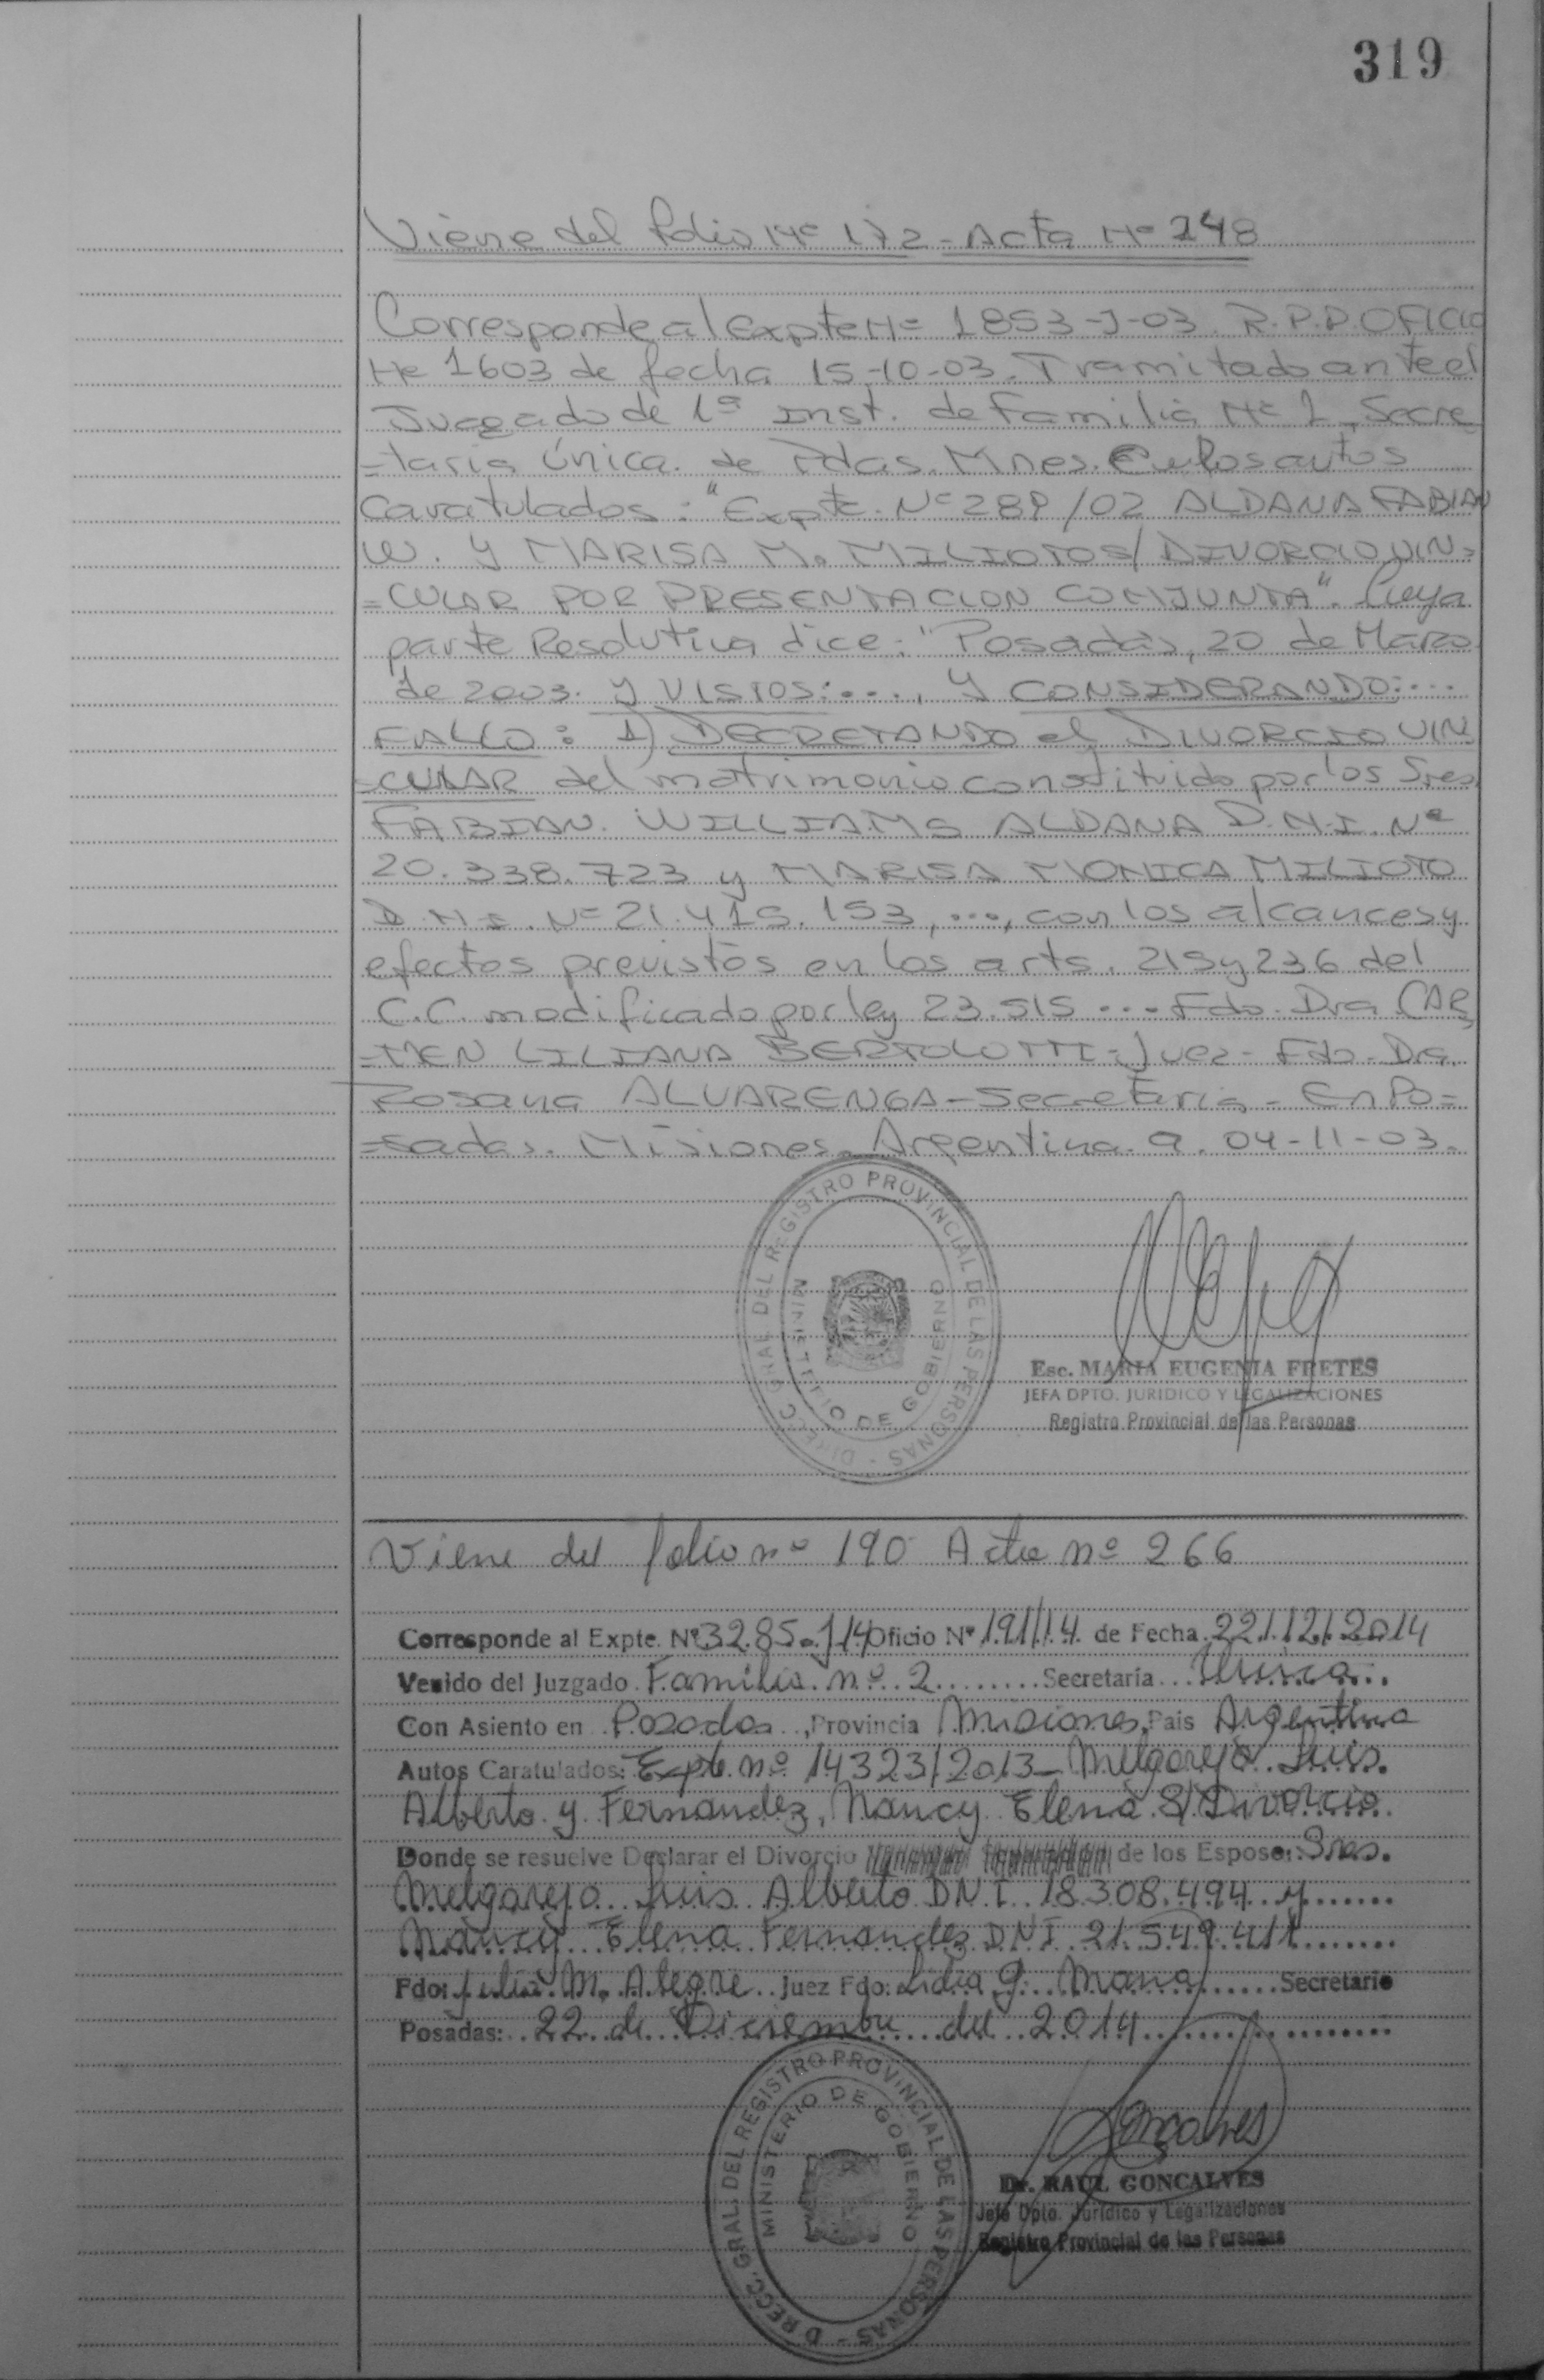 319
Viene del folio Nº 172 - Acta Nº 248
Corresponde al Expte Nº 1853-J-03. R.P.P. OFICIO
Nº 1603 de fecha 15-10-03. Tramitado ante el
Juzgado de 1ª Inst. de Familia Nº 1, Secre
=taria Única. de Pdas. Mnes. autos
Caratulados: "Expte. Nº 289/02 ALDANA FABIAN
W. Y MARISA M. MILIOTO S/ DIVORCIO VIN=
=CULAR POR PRESENTACION CONJUNTA". Cuya
parte Resolutiva dice: "Posadas, 20 de Marzo
de 2003. Y VISTOS:...., Y CONSIDERANDO:...
FALLO: 1) DECRETANDO el DIVORCIO VIN
=CULAR del matrimonio constituido por los Sres
FABIAN. WILLIAMS ALDANA D.N.I. Nº
20.338.723 y MARISA MONICA MILIOTO
D.N.I. Nº 21.415.153, ..., con los alcances y
efectos previstos en los arts. 215 y 236 del
C.C. modificado por ley 23.515 ... Fdo. Dra CAR
=MEN LILIANA BERTOLOTTI - Juez - Fdo. Dra.
Rosana ALVARENGA - Secretaria - En Po=
=sadas. Misiones. Argentina. a. 04-11-03.
DIRECC. GRAL. DEL REGISTRO PROVINCIAL DE LAS PERSONAS -
MINISTERIO DE GOBIERNO
Esc. MARIA EUGENIA FRETES
JEFA DPTO. JURIDICO Y LEGALIZACIONES
Registro Provincial de las Personas
Viene del folio nº 190 Acta nº 266
Corresponde al Expte. Nº 3285-J-14 Oficio Nº 191/14 de Fecha 22/12/2014
Venido del Juzgado Familia nº 2 Secretaría Única
Con Asiento en Posadas, Provincia Misiones, Pais Argentina
Autos Caratulados: Expte. nº 14323/2013 - Melgarejo Luis
Alberto y Fernandez, Nancy Elena S/ Divorcio
Donde se resuelve Declarar el Divorcio de los Esposos: Sres.
Melgarejo Luis Alberto D.N.I. 18.308.494 y
Nancy Elena Fernandez D.N.I 21.549.411
Fdo: Julia M. Alegre Juez Fdo: Lidia G. Secretario
Posadas: 22 de Diciembre del 2014
DIRECC. GRAL. DEL REGISTRO PROVINCIAL DE LAS PERSONAS -
MINISTERIO DE GOBIERNO
Goncalves
Dr. RAUL GONCALVES
Jefe Dpto. Jurídico y Legalizaciones
Registro Provincial de las Personas